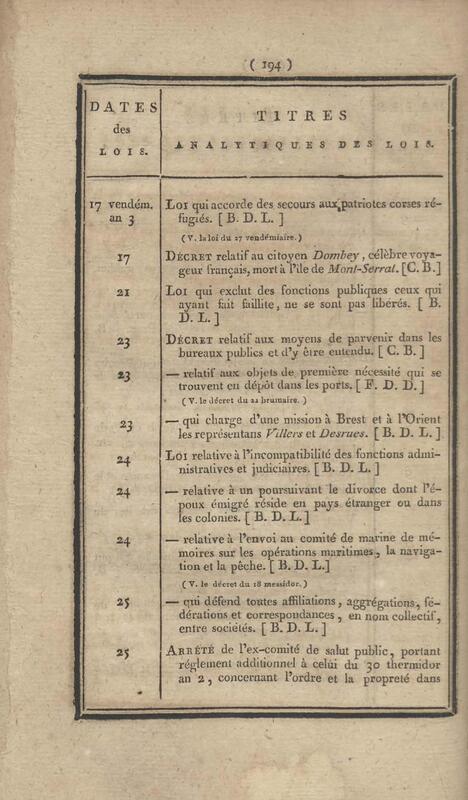 ( 194 )
DATES
des
LOIS.
TITRES
ANALYTIQUES DES LOIS.
17 vendém. an 3
LOI qui accorde des secours aux patriotes corses ré-
fugiés. [ B. D. L. ]
( V. la loi du 27 vendémiaire. )
17
DÉCRET relatif au citoyen Dombey, célèbre voya-
geur français, mort à l'île de Mont-Serrat. [C. B.]
21
LOI qui exclut des fonctions publiques ceux qui
ayant fait faillite, ne se sont pas libérés. [ B.
D. L. ]
23
DÉCRET relatif aux moyens de parvenir dans les
bureaux publics et d'y être entendu. [ C. B. ]
23
— relatif aux objets de première nécessité qui se
trouvent en dépôt dans les ports. [ F. D. D. ]
( V. le décret du 22 brumaire. )
23
— qui charge d'une mission à Brest et à l'Orient
les représentans Villers et Desrues. [ B. D. L. ]
24
LOI relative à l'incompatibilité des fonctions admi-
nistratives et judiciaires. [ B. D. L. ]
24
— relative à un poursuivant le divorce dont l'é-
poux émigré réside en pays étranger ou dans
les colonies. [ B. D. L. ]
24
— relative à l'envoi au comité de marine de mé-
moires sur les opérations maritimes, la naviga-
tion et la pêche. [ B. D. L.]
( V. le décret du 18 messidor. )
25
— qui défend toutes affiliations, aggrégations, fé-
dérations et correspondances, en nom collectif,
entre sociétés. [ B. D. L. ]
25
ARRÊTÉ de l'ex-comité de salut public, portant
réglement additionnel à celui du 30 thermidor
an 2, concernant l'ordre et la propreté dans